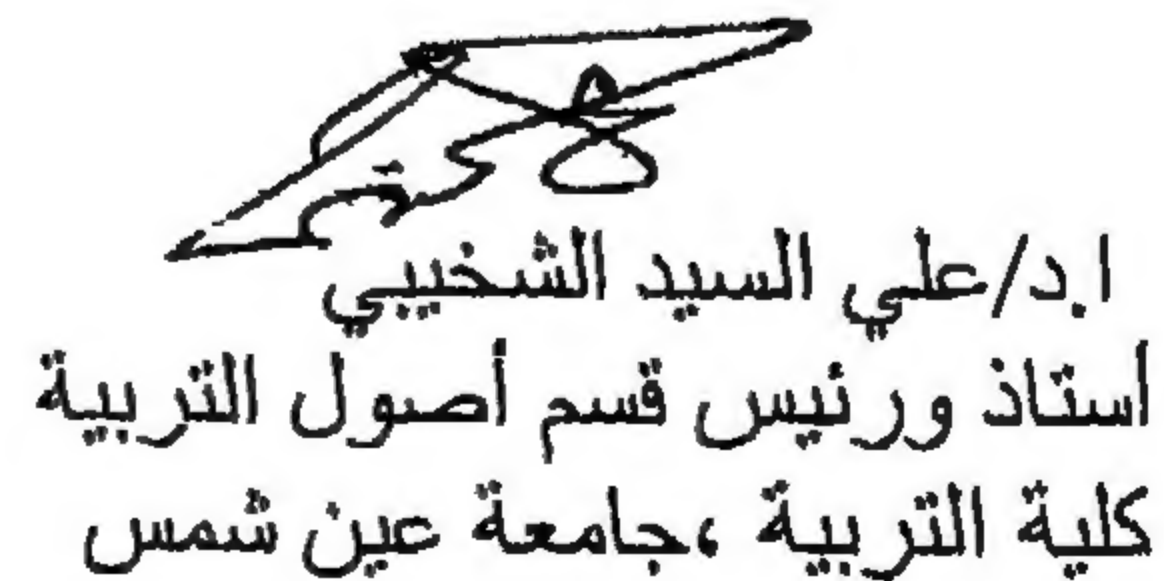 ا.د/علي السيد الشخيبي
أستاذ ورئيس قسم أصول التربية
كلية التربية ،جامعة عين شمس